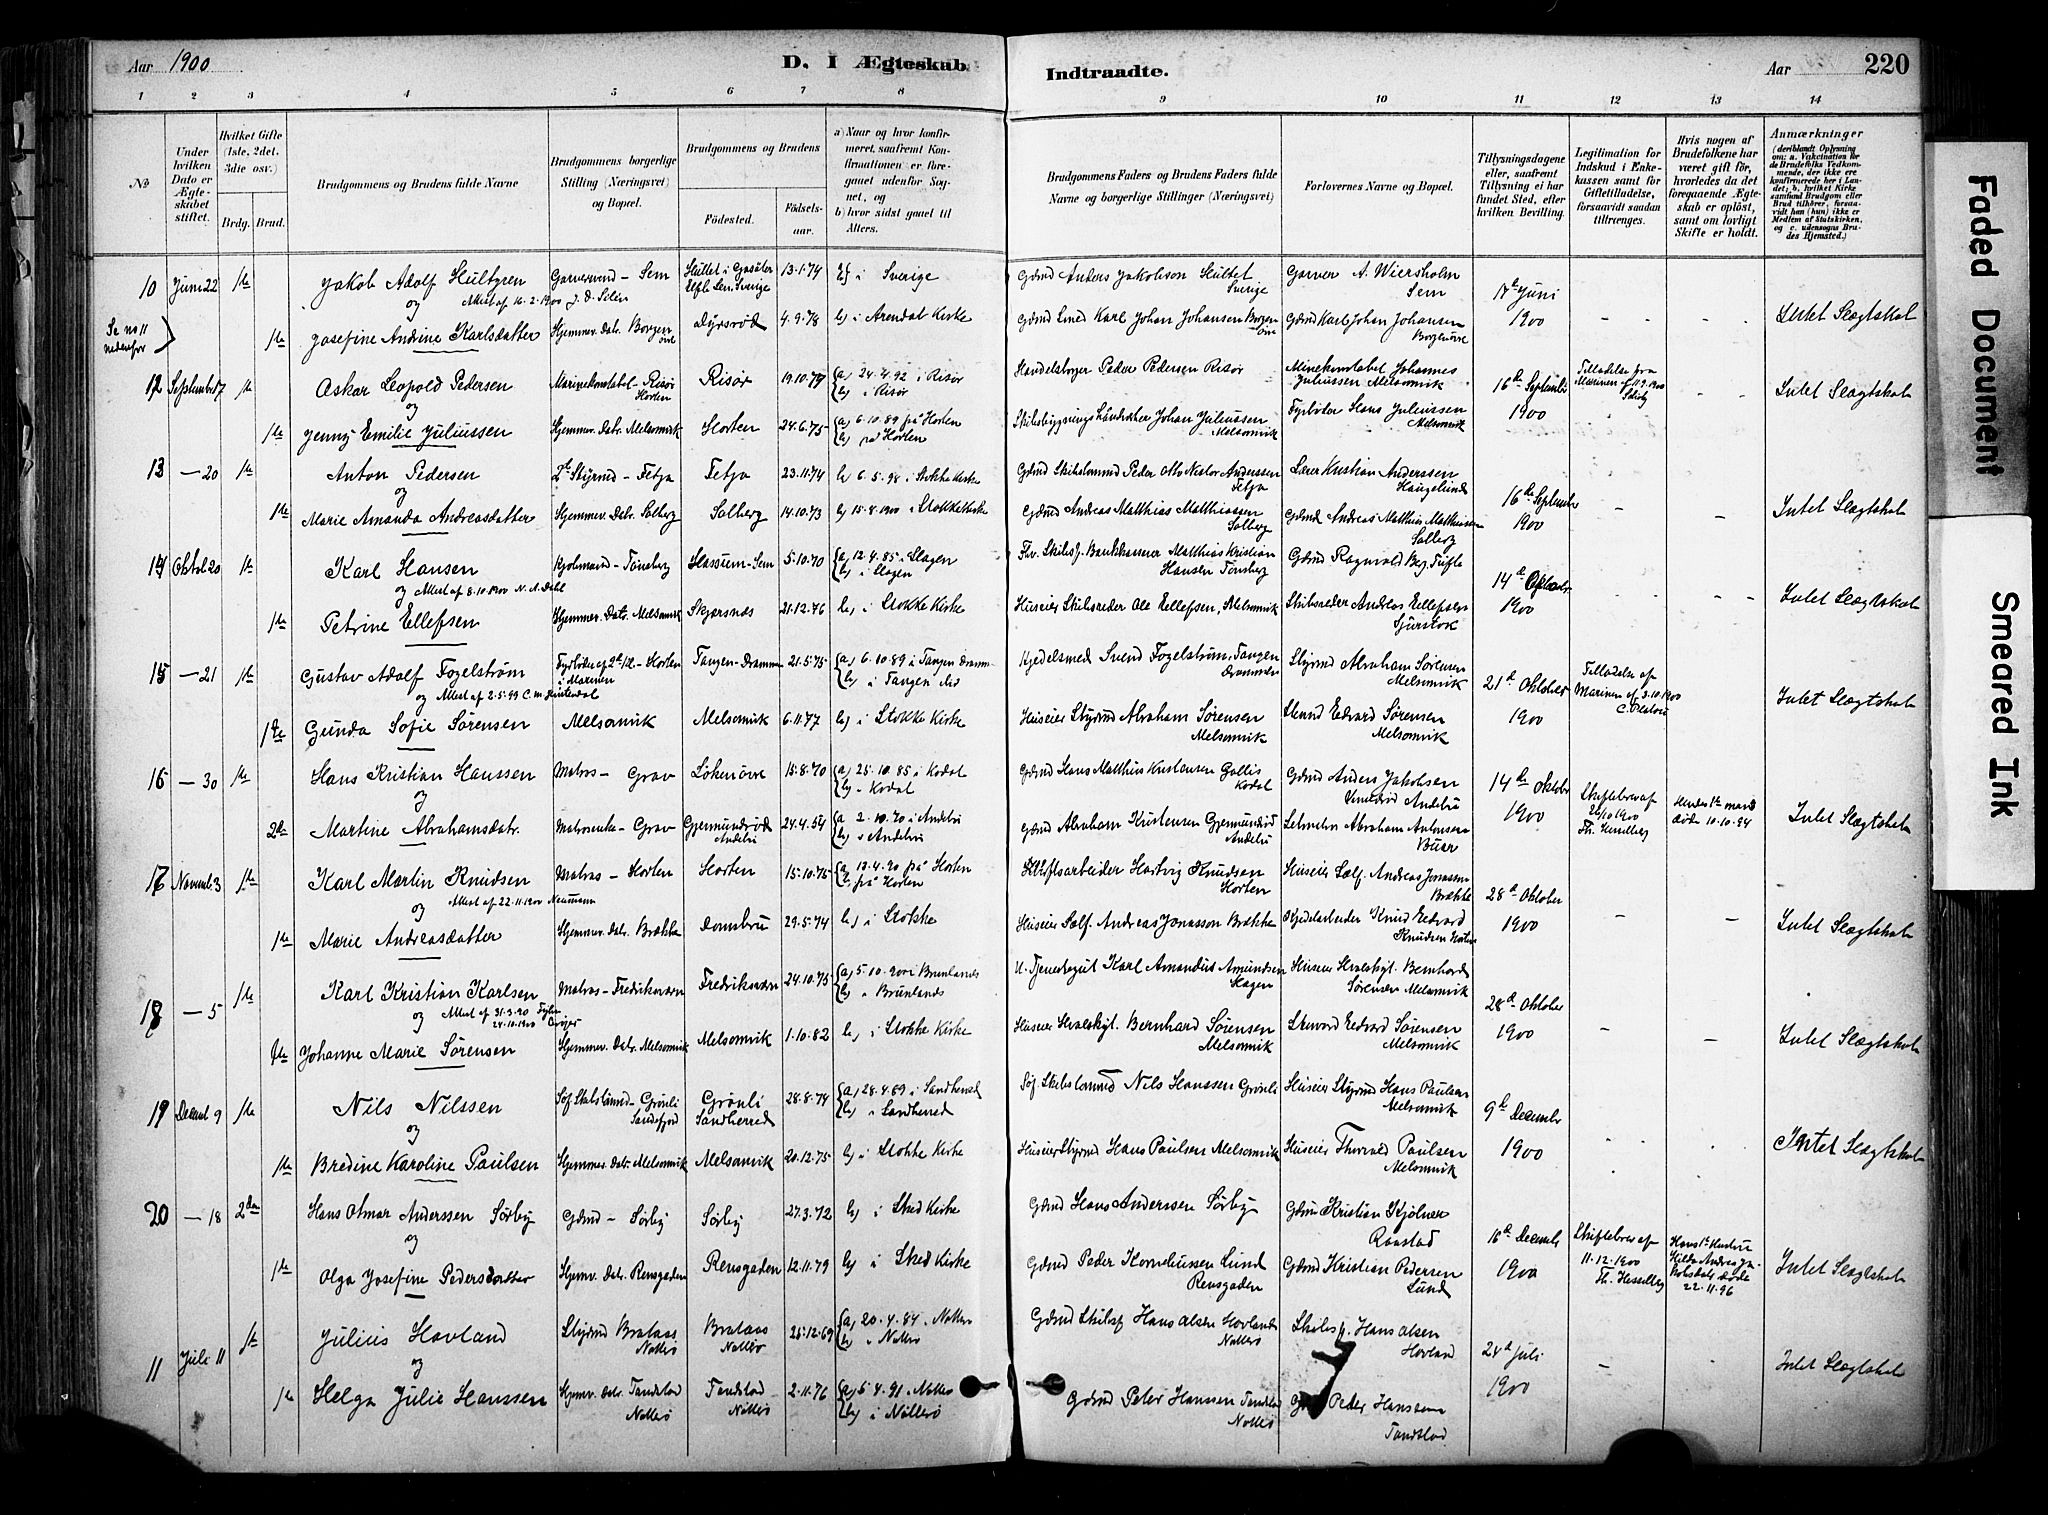 Aar 1900
D. I Ægteskab
Indtraadte.
Aar
220
1 2 3 4 5 6 7 8 9 10 11 12 13 14
No
Under hvilken Dato er Ægteskabet stiftet.
Hvilket Gifte (1ste, 2det, 3die osv.)
Brdg. Brud.
Brudgommens og Brudens fulde Navne
Brudgommens borgerlige Stilling (Næringsvei) og Bopæl.
Brudgommens og Brudens
Fødested. Fødselsaar.
a) Naar og hvor konfirmeret, saafremt Konfirmationen er foregaaet udenfor Sognet, og
b) hvor sidst gaaet til Alters.
Brudgommens Faders og Brudens Faders fulde Navne og borgerlige Stillinger (Næringsvei)
Forlovernes Navne og Bopæl.
Tillysningsdagene eller, saafremt Tillysning ei har fundet Sted, efter hvilken Bevilling.
Legitimation for Indskud i Enkekassen samt for Giftetilladelse, forsaavidt saadan tiltrænges.
Hvis nogen af Brudefolkene har været gift før, hvorledes da det foregaaende Ægteskab er opløst, samt om lovligt Skifte er holdt.
Anmærkninger (deriblandt Oplysning om: a. Vakcination for de Brudefolks Vedkommende, der ikke ere konfirmerede her i Landet; b. hvilket Kirkesamfund Brudgom eller Brud tilhører, forsaavidt han (hun) ikke er Medlem af Statskirken, og c. udensogns Brudes Hjemsted.)
10 Juni 22 1te Jakob Adolf Hultgren Garversvend - Sem 13.1.74 i Sverige Gdmd Anders Jakobson Hultet Sverige Garver A. Wiersholm Sem 17de Juni
og Attest af 16.2.1900
Se no 11 nedenfor 1te Josefine Andrine Karlsdatter Hjemmev. Datr. Borgenöre Dyrsrød 4.9.78 b) i Arendal Kirke Gdmd Smed Karl Johan Johansen Borgenöre Gdmd Karl Johan Johansen Borgenöre 1900 Intet Slægtskab
12 September 7 1te Oskar Leopold Pedersen Marinekonstabel - Risör Horten Risör 19.10.79 a) 24.4.92 i Risör b) i Risör Peder Pedersen Risör Minekonstabel Johannes Juliussen Melsomvik 16de September Tilladelse fra Marinen af 11.9.1900
og
1te Jenny Emilie Juliussen Hjemmev. Datr. Melsomvik Horten 24.6.75 a) 6.10.89 på Horten b) på Horten Johan Juliussen Melsomvik Fyrböter Hans Juliussen Melsomvik 1900 Intet Slægtskab
13 - 20 1te Anton Pedersen 2de Styrmd - Fetja Fetja 23.11.74 b) 6.5.98 i Stokke Kirke Gdmd Skibstömmd Peder Otto Nestor Anderssen Fetja Lærer Kristian Anderssen Haugelund 16de September
og
1te Marie Amanda Andreasdatter Hjemmev. Datr. Solberg Solberg 14.10.73 b) 15.4.1900 i Stokke Kirke Gdmd Andreas Matthias Matthiassen Solberg Gdmd Andreas Matthias Matthiassen Solberg 1900 Intet Slægtskab
14 Oktob 20 1te Karl Hansen Tönsberg Hassum - Sem 5.10.70 a) 12.4.85 i Slagen b) i Slagen Matthias Kristian Hansen Tönsberg Gdmd Ragnvald Berg Tufte 14de Oktober
og Attest af 8.10.1900 N. A. Dahl
1te Petrine Ellefsen Hjemmev. Datr. Melsomvik Skjærsnæs 21.12.76 b) i Stokke Kirke Huseier Skibsreder Ole Ellefsen, Melsomvik Skibsreder Andreas Ellefsen Sjürstok 1900 Intet Slægtskab
15 - 21 1te Gustav Adolf Fogelström Fyrböter af 2den Kl. - Horten i Marinen Tangen - Drammen 21.5.75 a) 6.10.89 i Tangen Drammen b) i Tangen Kjedelsmed Svend Fogelström, Tangen Drammen Styrmd Abraham Sørensen Melsomvik 21de Oktober Tilladelse af Marinen af 3.10.1900
og Attest af 2.5.99
1te Gunda Sofie Sørensen Melsomvik Melsomvik 6.11.77 b) i Stokke Kirke Huseier Styrmd Abraham Sørensen Melsomvik Edvard Sørensen Melsomvik 1900 Intet Slægtskab
16 - 30 1te Hans Kristian Hanssen Matros - Grav Lökenöre 15.8.70 a) 25.10.85 i Kodal b) - Kodal Gdmd Hans Matthias Kristiansen Gallis Kodal Gdmd Anders Jakobsen Andebu 14de Oktober
og
2de Martine Abrahamsdatr. Matrosenke - Grav Gjermundröd Andebu 24.4.54 a) 2.10.70 i Andebu b) i Andebu Gdmd Abraham Kristensen Gjermundröd Andebu Abraham Antonsen Buer 1900 Skiftebrev af 26/10 1900 Th. Hesselberg Hendes 1ste mand døde 10.10.94 Intet Slægtskab
17 Novemb. 3 1te Karl Martin Knudsen Matros - Horten Horten 15.10.75 a) 13.4.90 på Horten b) på Horten Værftsarbeider Hartvig Knudsen Horten Huseier Sælf. Andreas Jonassen Brække 28de Oktober
og Attest af 22.11.1900 Neumann
1te Marie Andreasdatter Hjemmev. Datr. Brække 29.5.74 b) i Stokke Huseier Sælf. Andreas Jonassen Brække Kjedelarbeider Knud Edvard Knudsen Horten 1900 Intet Slægtskab
18 - 5 1te Karl Kristian Karlsen Matros - Fredriksværn Fredriksværn 24.10.75 a) 5.10.90 i Brunlanes b) i Brunlanes U. Tjenestegut Karl Amandus Amundsen Skagen Huseier Hvalskyt. Bernhard Sørensen Melsomvik 28de Oktober
og Attest af 31.3.90 24.10.1900
1te Johanne Marie Sørensen Hjemmev. Datr. Melsomvik Melsomvik 1.10.82 b) i Stokke Kirke Huseier Hvalskyt. Bernhard Sørensen Melsomvik Steward Edvard Sørensen Melsomvik 1900 Intet Slægtskab
19 Decemb 9 1te Nils Nilssen Grönli Sandefjord Grönli Sandherred 28.8.74 a) 28.4.89 i Sandherred b) i Sandherred Nils Hanssen Grönli Huseier Styrmd Hans Paulsen Melsomvik 9de December
og
1te Bredine Karoline Paulsen Hjemmev. Datr. Melsomvik Melsomvik 20.12.75 b) i Stokke Kirke Huseier Styrmd Hans Paulsen Melsomvik Huseier Thorvald Paulsen Melsomvik 1900 Intet Slægtskab
20 - 18 2den Hans Otmar Anderssen Sörby Gdmd - Sörby Sörby 27.3.72 b) i Sked Kirke Gdmd Hans Anderssen Sörby Gdmd Kristian Kjølner Ranstad 16de Decemb
og
1te Olga Josefine Pedersdatter Hjemv. Datr. Rensgaden Rensgaden 12.11.79 b) i Sked Kirke Gdmd Peder Korneliussen Lund Rensgaden Gdmd Kristian Pedersen Lund 1900 Skiftebrev af 11.12.1900 Th. Hesselberg Hans 1te Hustru Hilda Andrea Jakobsdatr døde 22.11.96 Intet Slægtskab
11 Juli 11 1te Julius Hovland Styrmd Brataas Nötterö Brataas Nötterö 25.12.69 a) 20.4.84 i Nötterö b) i Nötterö Gdmd Skibsf. Hans Olsen Hovland Nötterö Skibsf. Hans Olsen Hovland 24de Juli
og
1te Helga Julie Hanssen Hjemv. Datr. Tandstad Nötterö Tandstad Nötterö 2.11.76 a) 5.4.91 i Nötterö b) i Nötterö Gdmd Peter Hanssen Tandstad Nötterö Peder Hanssen Tandstad 1900 Intet Slægtskab
Faded Document
Smeared Ink